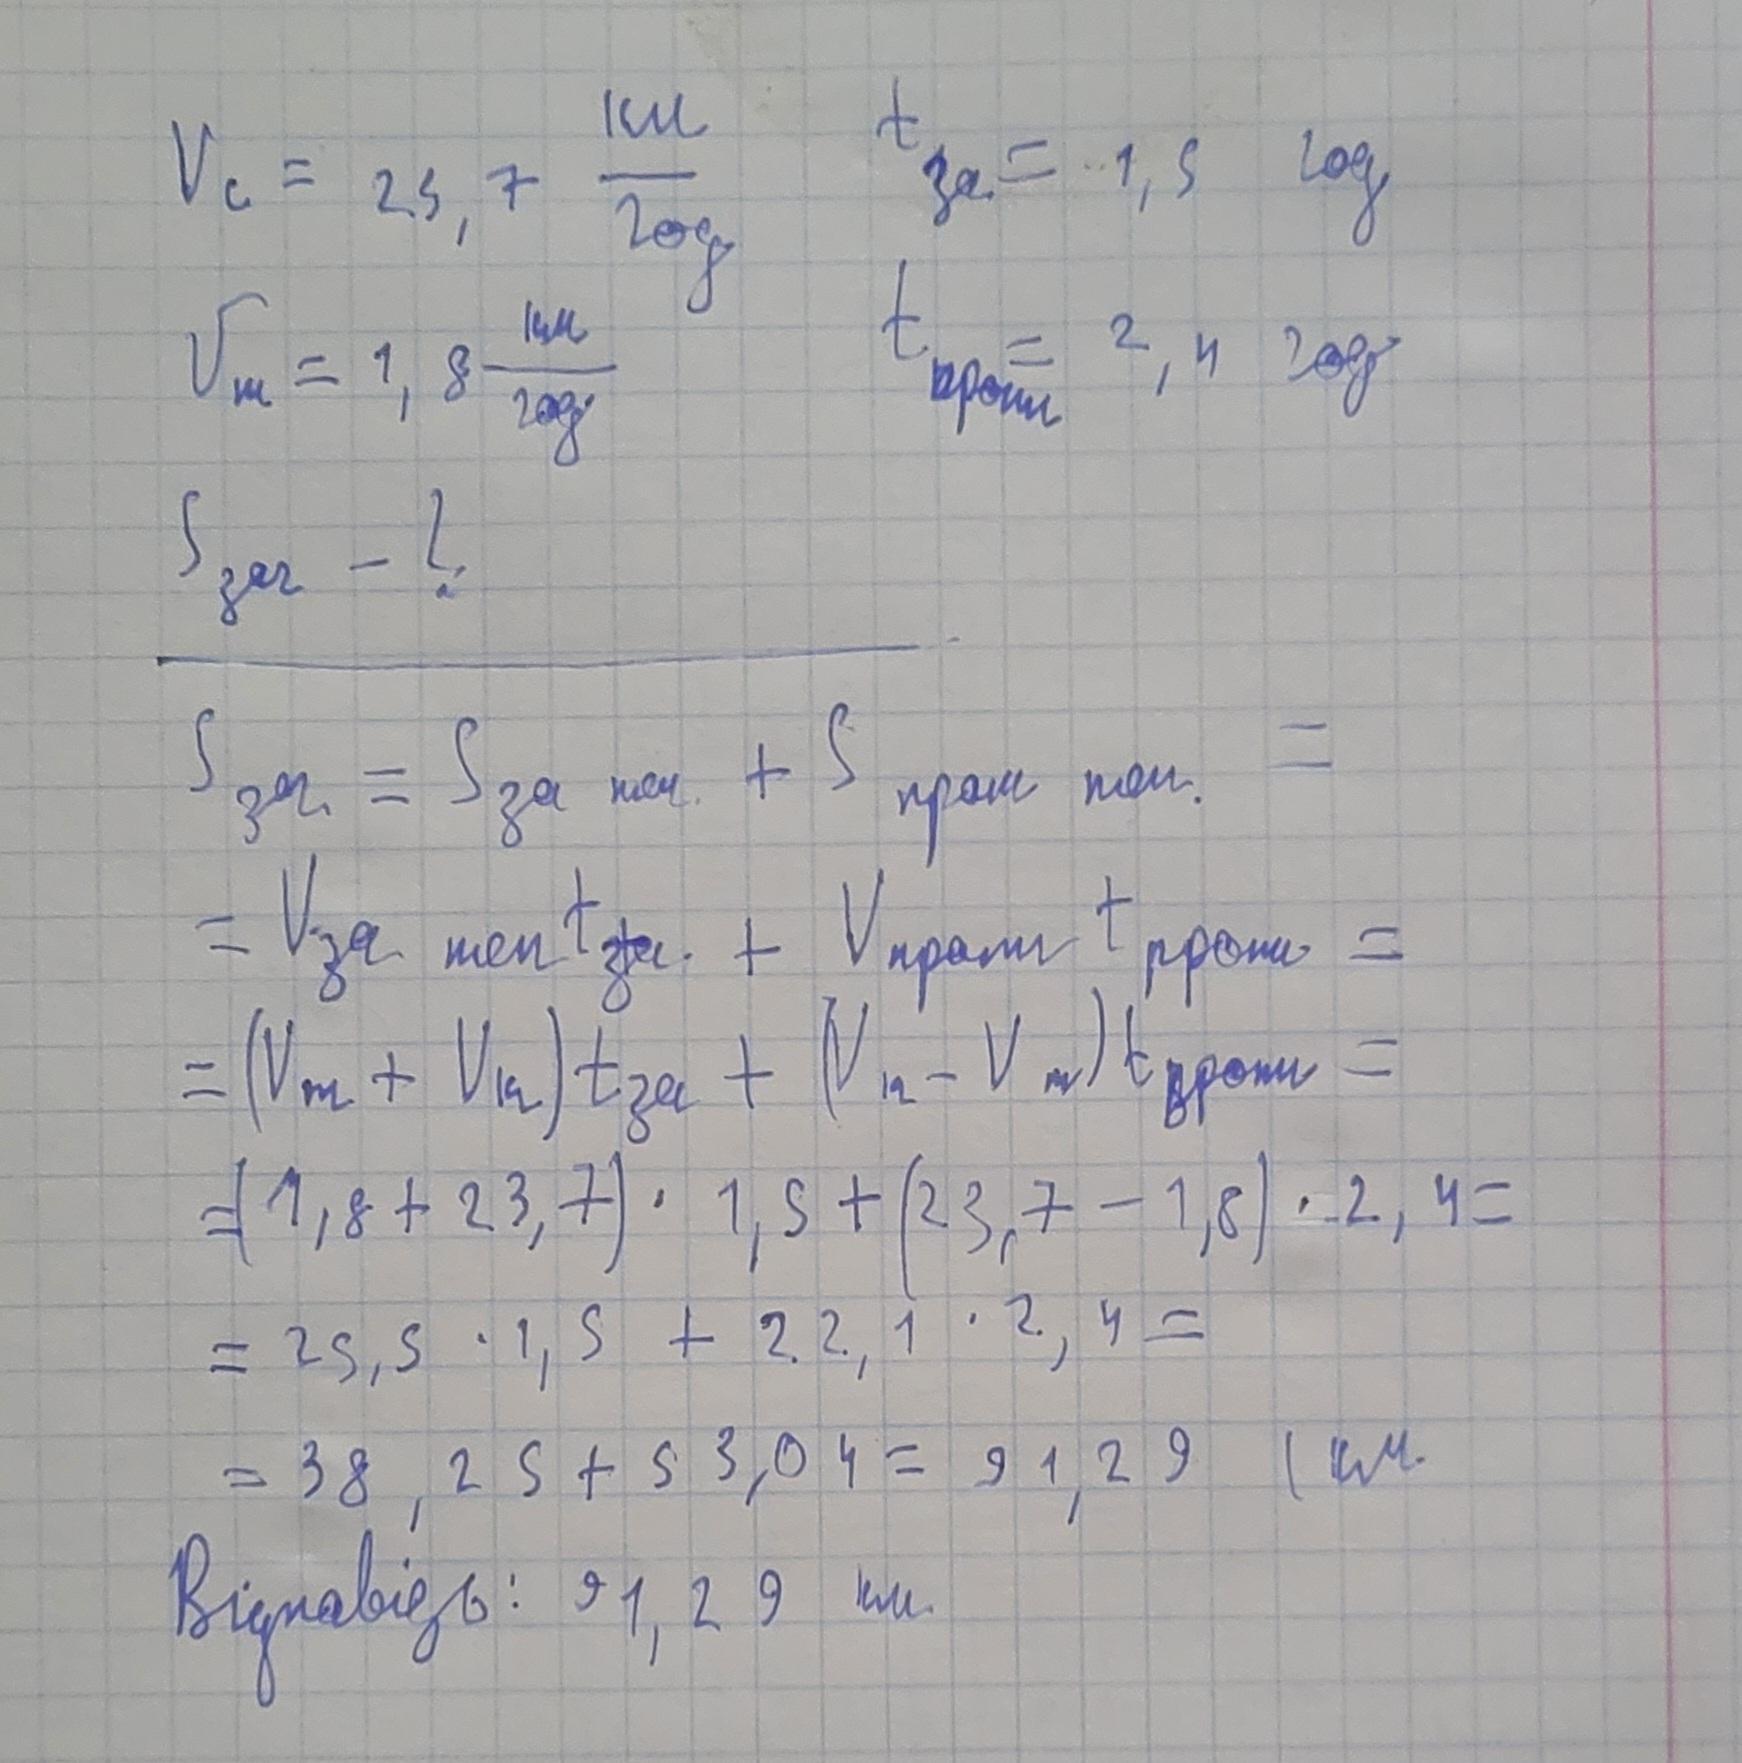 Vс = 25,7 км/год tза = 1,5 год
Vт = 1,8 км/год tпроти = 2,4 год
Sзаг - ?
Sзаг. = Sза теч. + Sпроти теч. =
= Vза теч tза. + Vпроти tпроти =
= (Vт + Vк) tза + (Vк - Vт) tпроти =
= (1,8 + 23,7) · 1,5 + (23,7 - 1,8) · 2,4 =
= 25,5 · 1,5 + 22,1 · 2,4 =
= 38,25 + 53,04 = 91,29 (км.
Відповідь: 91,29 км.